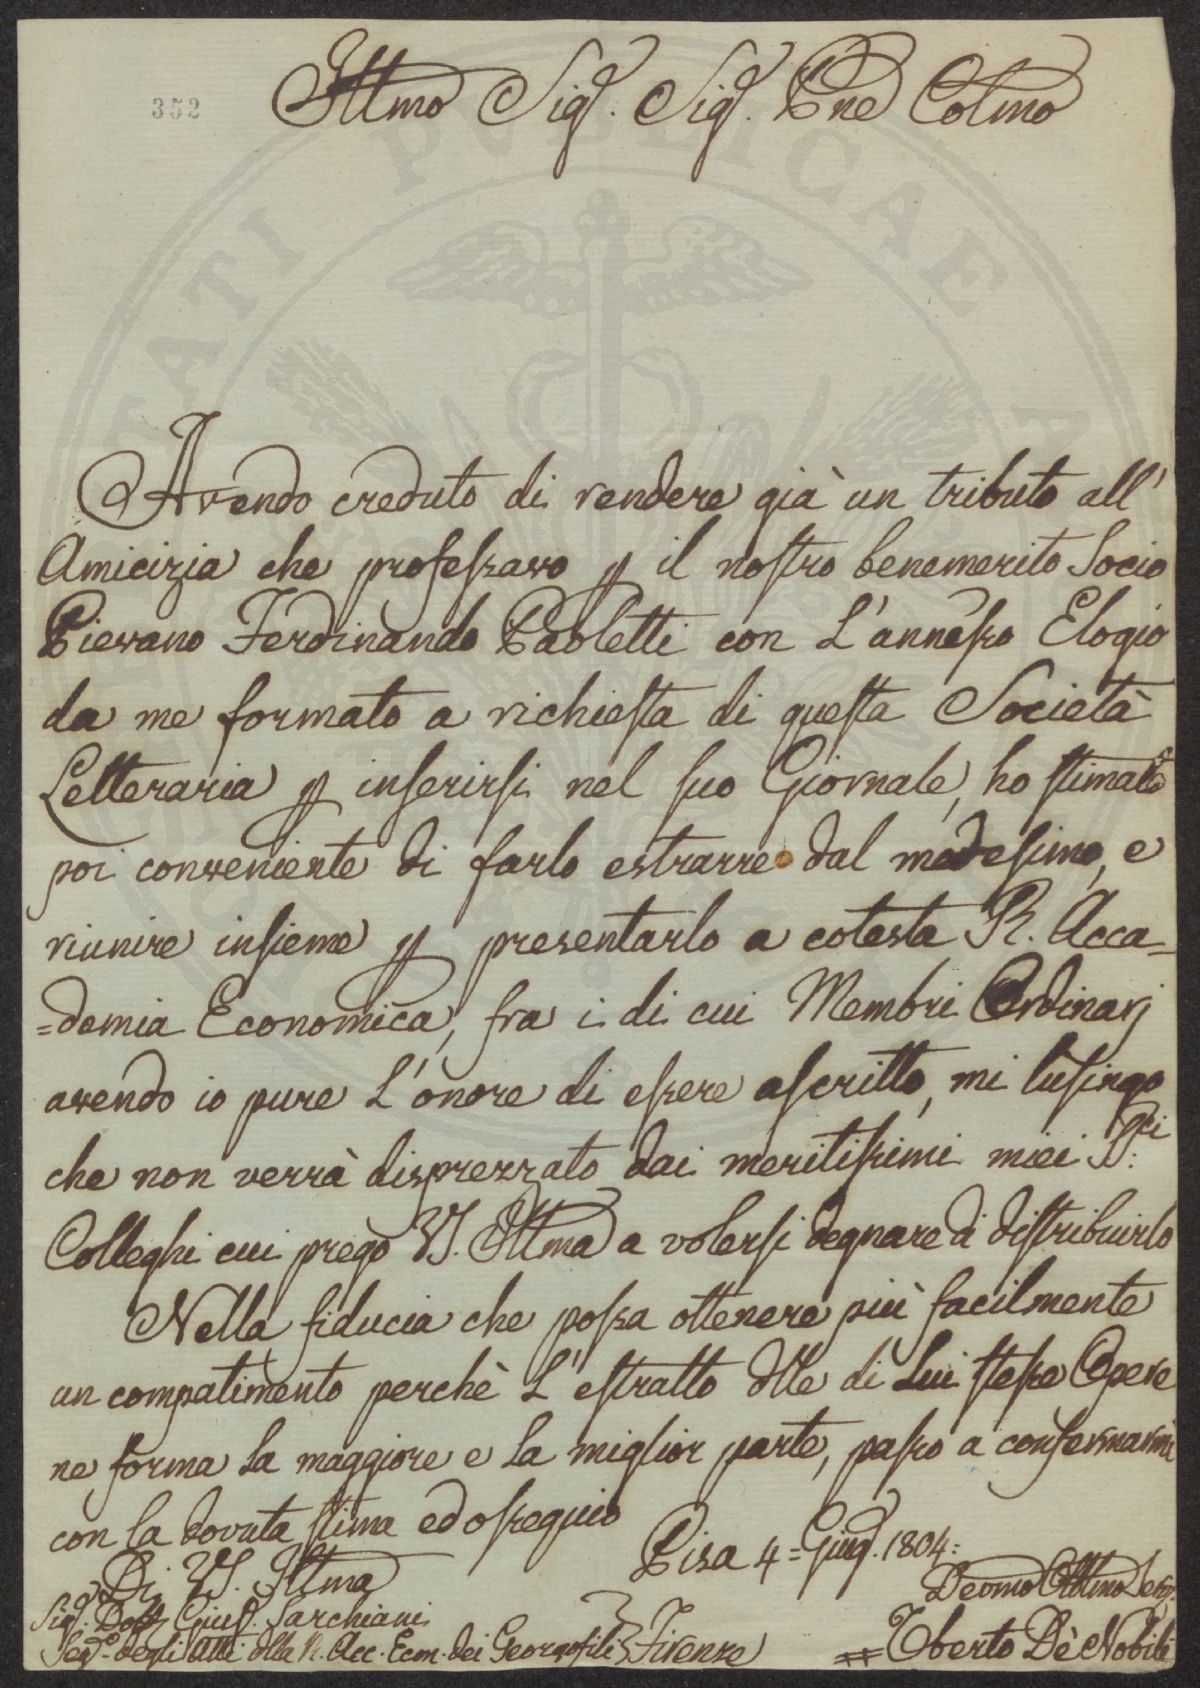 352
Illmo Sigr. Sigr. Pne Colmo
Avendo creduto di rendere già un tributo all'
Amicizia che professavo p il nostro benemerito Socio
Pievano Ferdinando Paoletti con L'annesso Elogio
da me formato a richiesta di questa Società
Letteraria p inserirsi nel suo Giornale, ho stimato
poi conveniente di farlo estrarre dal medesimo, e
riunire insieme p presentarlo a cotesta R. Acca=
=demia Economica, fra i di cui Membri Ordinarj
avendo io pure L'onore di essere ascritto, mi lusingo
che non verrà disprezzato dai meritissimi miei
Colleghi cui prego VS. Illma a volersi degnare di distribuirlo
Nella fiducia che possa ottenere più facilmente
un compatimento perchè L'estratto dlle di Lui stesse Opere
ne forma La maggiore e La miglior parte, passo a confermarmi
con la dovuta stima ed ossequio
Pisa 4 = Giug. 1804:
Di VS. Illma
Devmo Obblmo Serv.
Sigr. Dott. Gius. Sarchiani
Segr. degli Atti dlla R. Acc. Econ. dei Georgofili } Firenze
= Oberto Dè Nobili
PVBLICAE